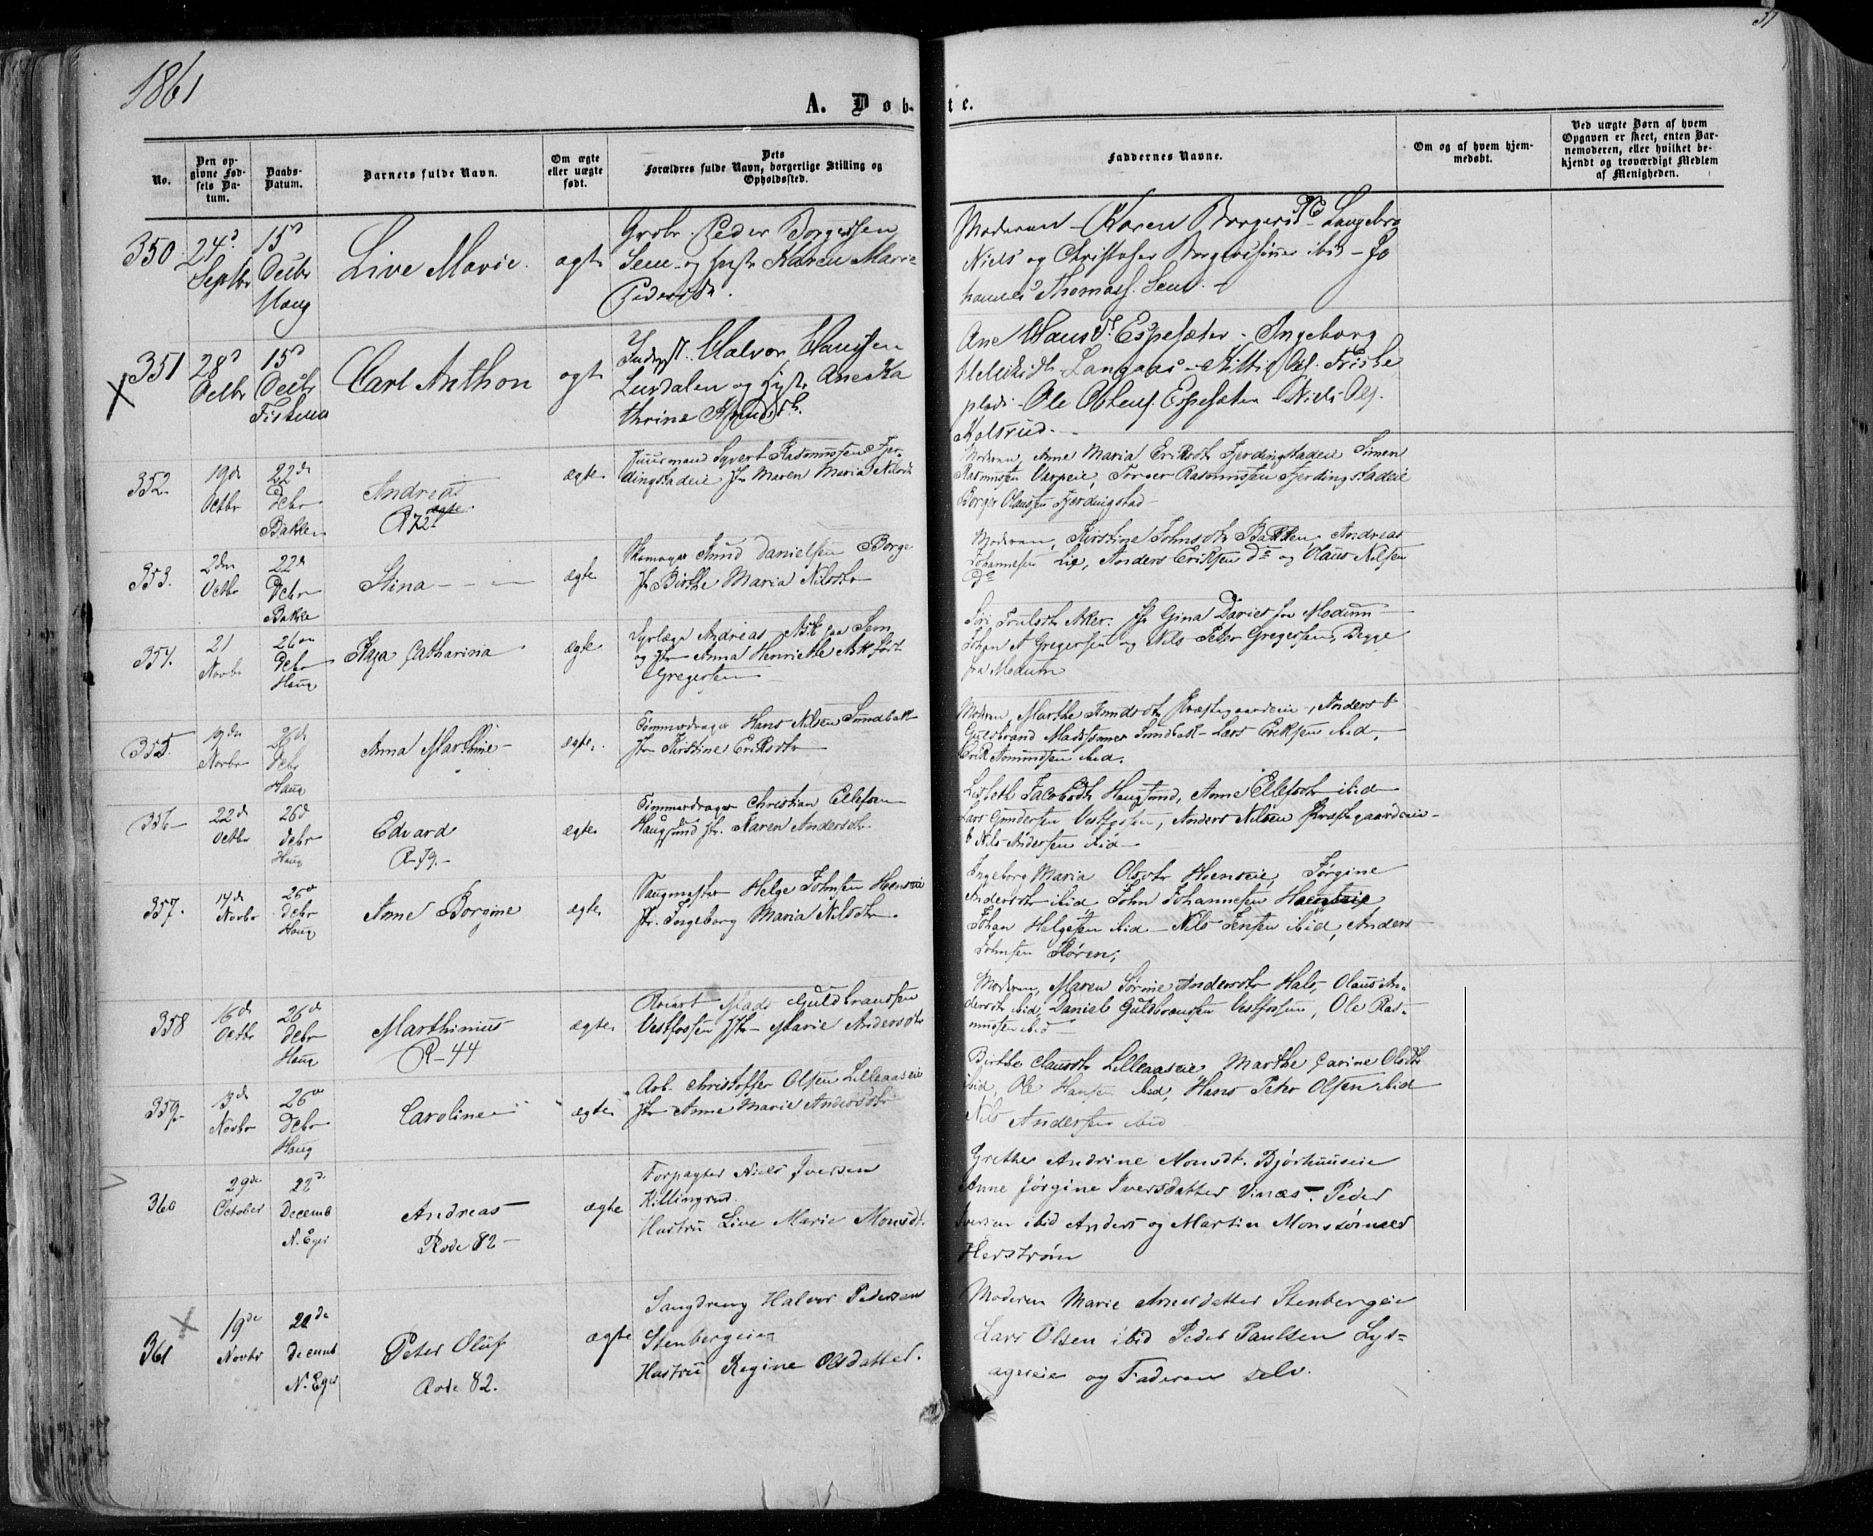 1861
37
A. Døbte.
No.
Den opgivne Fødsels Datum.
Daabs-Datum.
Barnets fulde Navn.
Om ægte eller uægte født.
Dets Forældres fulde Navn, borgerlige Stilling og Opholdssted.
Faddernes Navne.
Om og af hvem hjemmedøbt.
Ved uægte Børn af hvem Opgaven er skeet, enten Barnemoderen, eller hvilket bekjendt og troværdigt Medlem af Menigheden.
350 24d Septbr 15d Decbr Haug
Live Marie
ægte
Grbr. Peder Borgersen
Sem og Hustr Karen Marie
Pedersdtr.
Moderen Karen
Niels og Christofer Borgersønner ibid Jo
hannes Thomass. Sem.
351 28d Octbr 15d Decbr Fiskum
Carl Anthon
ægte
Inderst. Halvor Hanssen
Lurdalen og Hustr Ane Ka
thrine
Ane Hansd. Espesæter - Ingeborg
Langaas - Kittil Ol. Fiske
plads - Ole Espesæter Niels Ols.
Kolsrud.
352. 19de Octbr 22de Dcbr Bakken
Andreas
R 72
ægte
Huusmand Syvert Rasmussen Fjer
dingstadeie Hr Maren Maria Nilsdr
Moderen, Anne Maria Eriksdtr Fjerdingstadeie Simen
Rasmussen Varpeie, Torger Rasmussen Fjerdingstadeie
Borger Olaussen Fjerdingstad
353. 2den Octbr 22de Dcbr Bakke
Stina
ægte
Skomager Amund Danielsen Borge
Hr Birthe Maria Nilsdtr
Moderen, Kirstine Johnsdtr Bakken, Andreas
Johannesen Lie, Anders Eriksen Do og Olaus Nilsen
Do
354. 21 Novbr 26de Dcbr Haug
Kaja Catharina
ægte
Dyrlæge Andreas Ask paa Sem
og Hr Anna Henriette Ask født
Gregersen
Siri Trulsdtr Aker. Hr Gina Davies fra Modum
Johan A Gregersen og Nils Peter Gregersen Begge
fra Modum
355. 19de Novbr 26de Dcbr Haug
Anna Marthine
ægte.
Tømmerdrager Hans Nilsen Sundbak
Hr Kirstine Eriksdtr
Moderen, Marthe Amundsdtr Præstegaardeie, Anders &
Gulbrand Madssønner Sundbak - Lars Eriksen ibid,
Erik Amundsen ibid.
356 22de Octbr 26de Dcbr Haug
Edvard
R-79.
ægte
Tømmerdrager Christian Ellefsen
Haugsund Hr. Karen Andersdtr.
Lisbeth Jacobsdtr Haugsund, Anne Ellefsdtr ibid
Lars Gundersen Vestfossen, Anders Nilsen Præstegaardeie
& Nils Andersen ibid
357. 14de Novbr 26de Dcbr Haug
Anne Borgine
ægte
Saugmester Helge Johnsen Hoenseie
Hr. Ingeborg Maria Nilsdtr.
Ingeborg Maria Olsdtr Hoenseie, Jørgine
Andersdtr ibid John Johannesen
Johan Helgesen ibid - Nils Jensen ibid, Anders
Johnsen Støren,
358 16de Octbr 26de Dcbr Haug
Marthinius
R-44
ægte
Mads Guldbransen
Vestfossen Hr Marie Andersdtr
Moderen, Maren Sørine Andersdtr Hals, Olaus An
dersdtr ibid, Daniel Guldbransen Vestfossen, Ole Ras
mussen ibid
359. 3de Novbr 26de Dcbr Haug
Caroline
ægte
Arb. Christoffer Olsen Lilleaaseie
Hr Anne Marie Andersdtr
Birthe Clausdtr Lilleaaseie, Marthe Carine Olsdtr
ibid, Ole Hansen ibid, Hans Peter Olsen ibid
Nils Andersen ibid
360 29de October 22de Decemb N. Eger
Andreas
Rode 82
ægte
Forpagter Niels Iversen
Killingrud.
Hustru Live Marie Monsdt.
Grethe Andrine Monsdt. Bjørhuuseie
Anne Jørgine Iversdatter Vinæs. Peder
Iversen ibid Anders og Martin Monssønner
Herstrøm
361 19de Novbr Decemb N. Eger
Peter Oluf
Rode 82.
ægte
Saugdreng Halvor Pedersen
Stenbergeie
Hustru Regine Olsdatter.
Moderen Marie Arnesdatter Stenbergeie
Lars Olsen ibid Peder Paulsen Lys-
ageieie og Faderen selv.